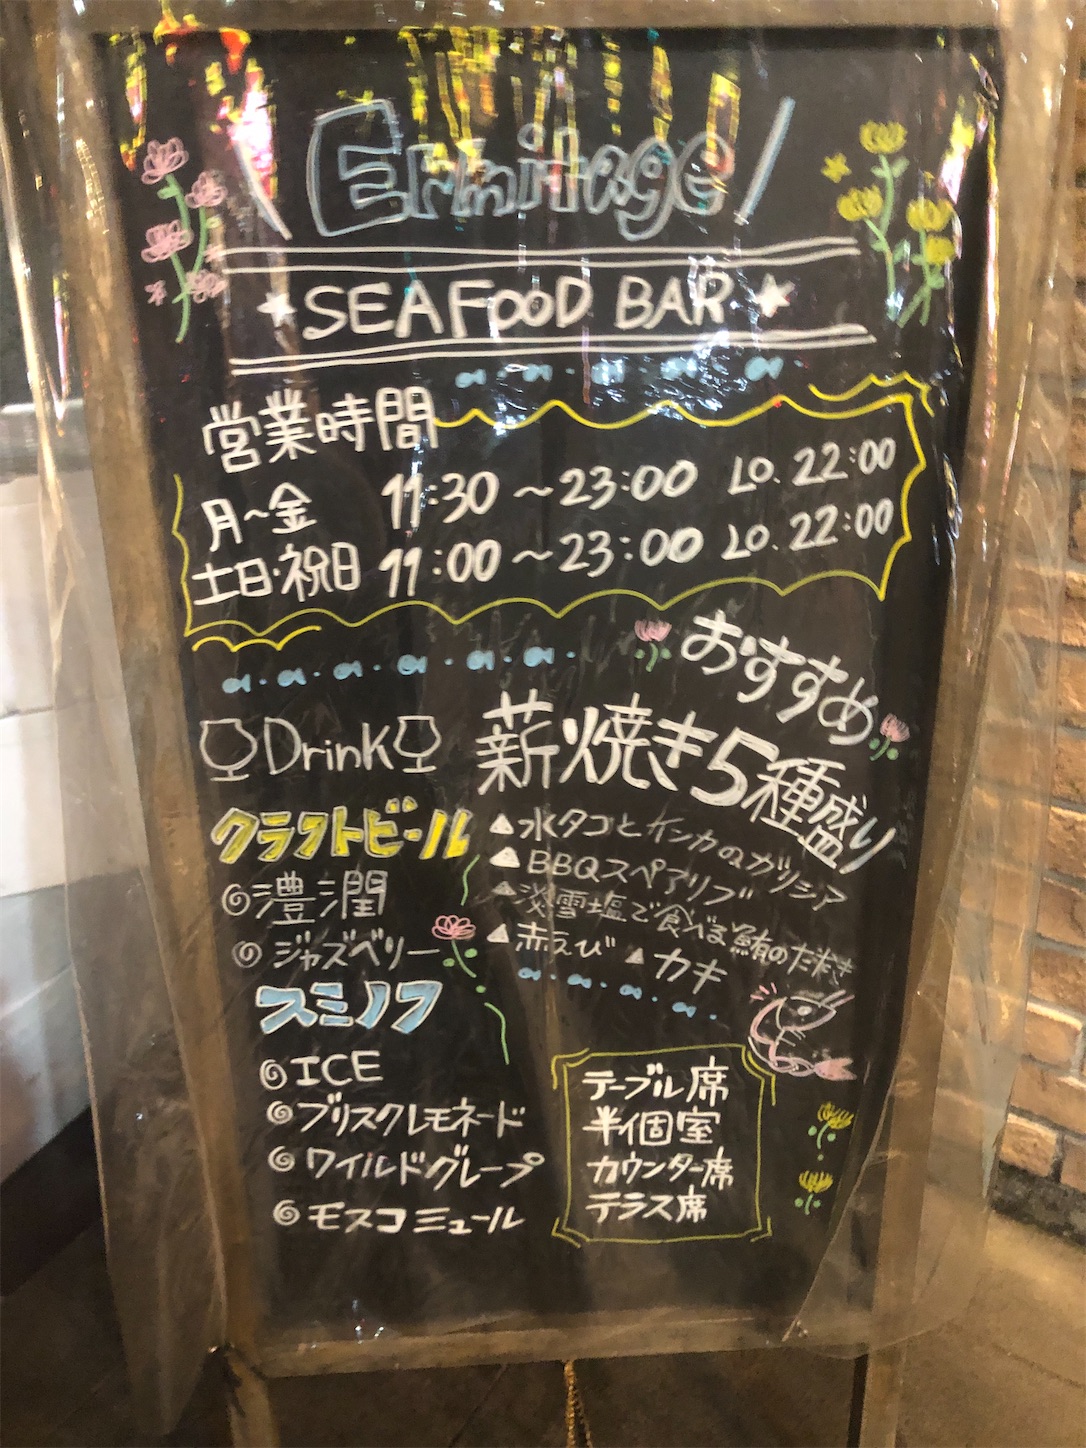 Ermitage
SEAFOOD BAR
営業時間
月〜金 11:30 〜23:00 LO. 22:00
土日・祝日 11:00 〜23:00 LO. 22:00
おすすめ
薪焼き5種盛り
水タコとインカのガリシア
BBQスペアリブ
淡雪塩で食べる鮪のたたき
赤えび カキ
Drink
クラフトビール
澧潤
ジャズベリー
スミノフ
ICE
ブリスクレモネード
ワイルドグレープ
モスコミュール
テーブル席
半個室
カウンター席
テラス席